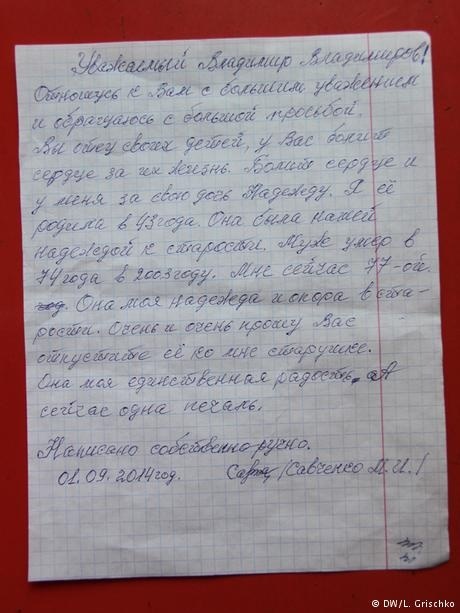 Уважаемый Владимир Владимиров!
Отношусь к Вам с большим уважением
и обращаюсь с большой просьбой.
Вы отец своих детей, у Вас болит
сердце за их жизнь. Болит сердце и
у меня за свою дочь Надежду. Я её
родила в 43 года. Она была нашей
надеждой к старости. Муж умер в
74 года в 2003 году. Мне сейчас 77-ой
Она моя надежда и опора в ста-
рости. Очень и очень прошу Вас
отпустите её ко мне старушке.
Она моя единственная радость, а
сейчас одна печаль.
Написано собственно-ручно.
01.09.2014 год. /Савченко М.И./
© DW/L. Grischko